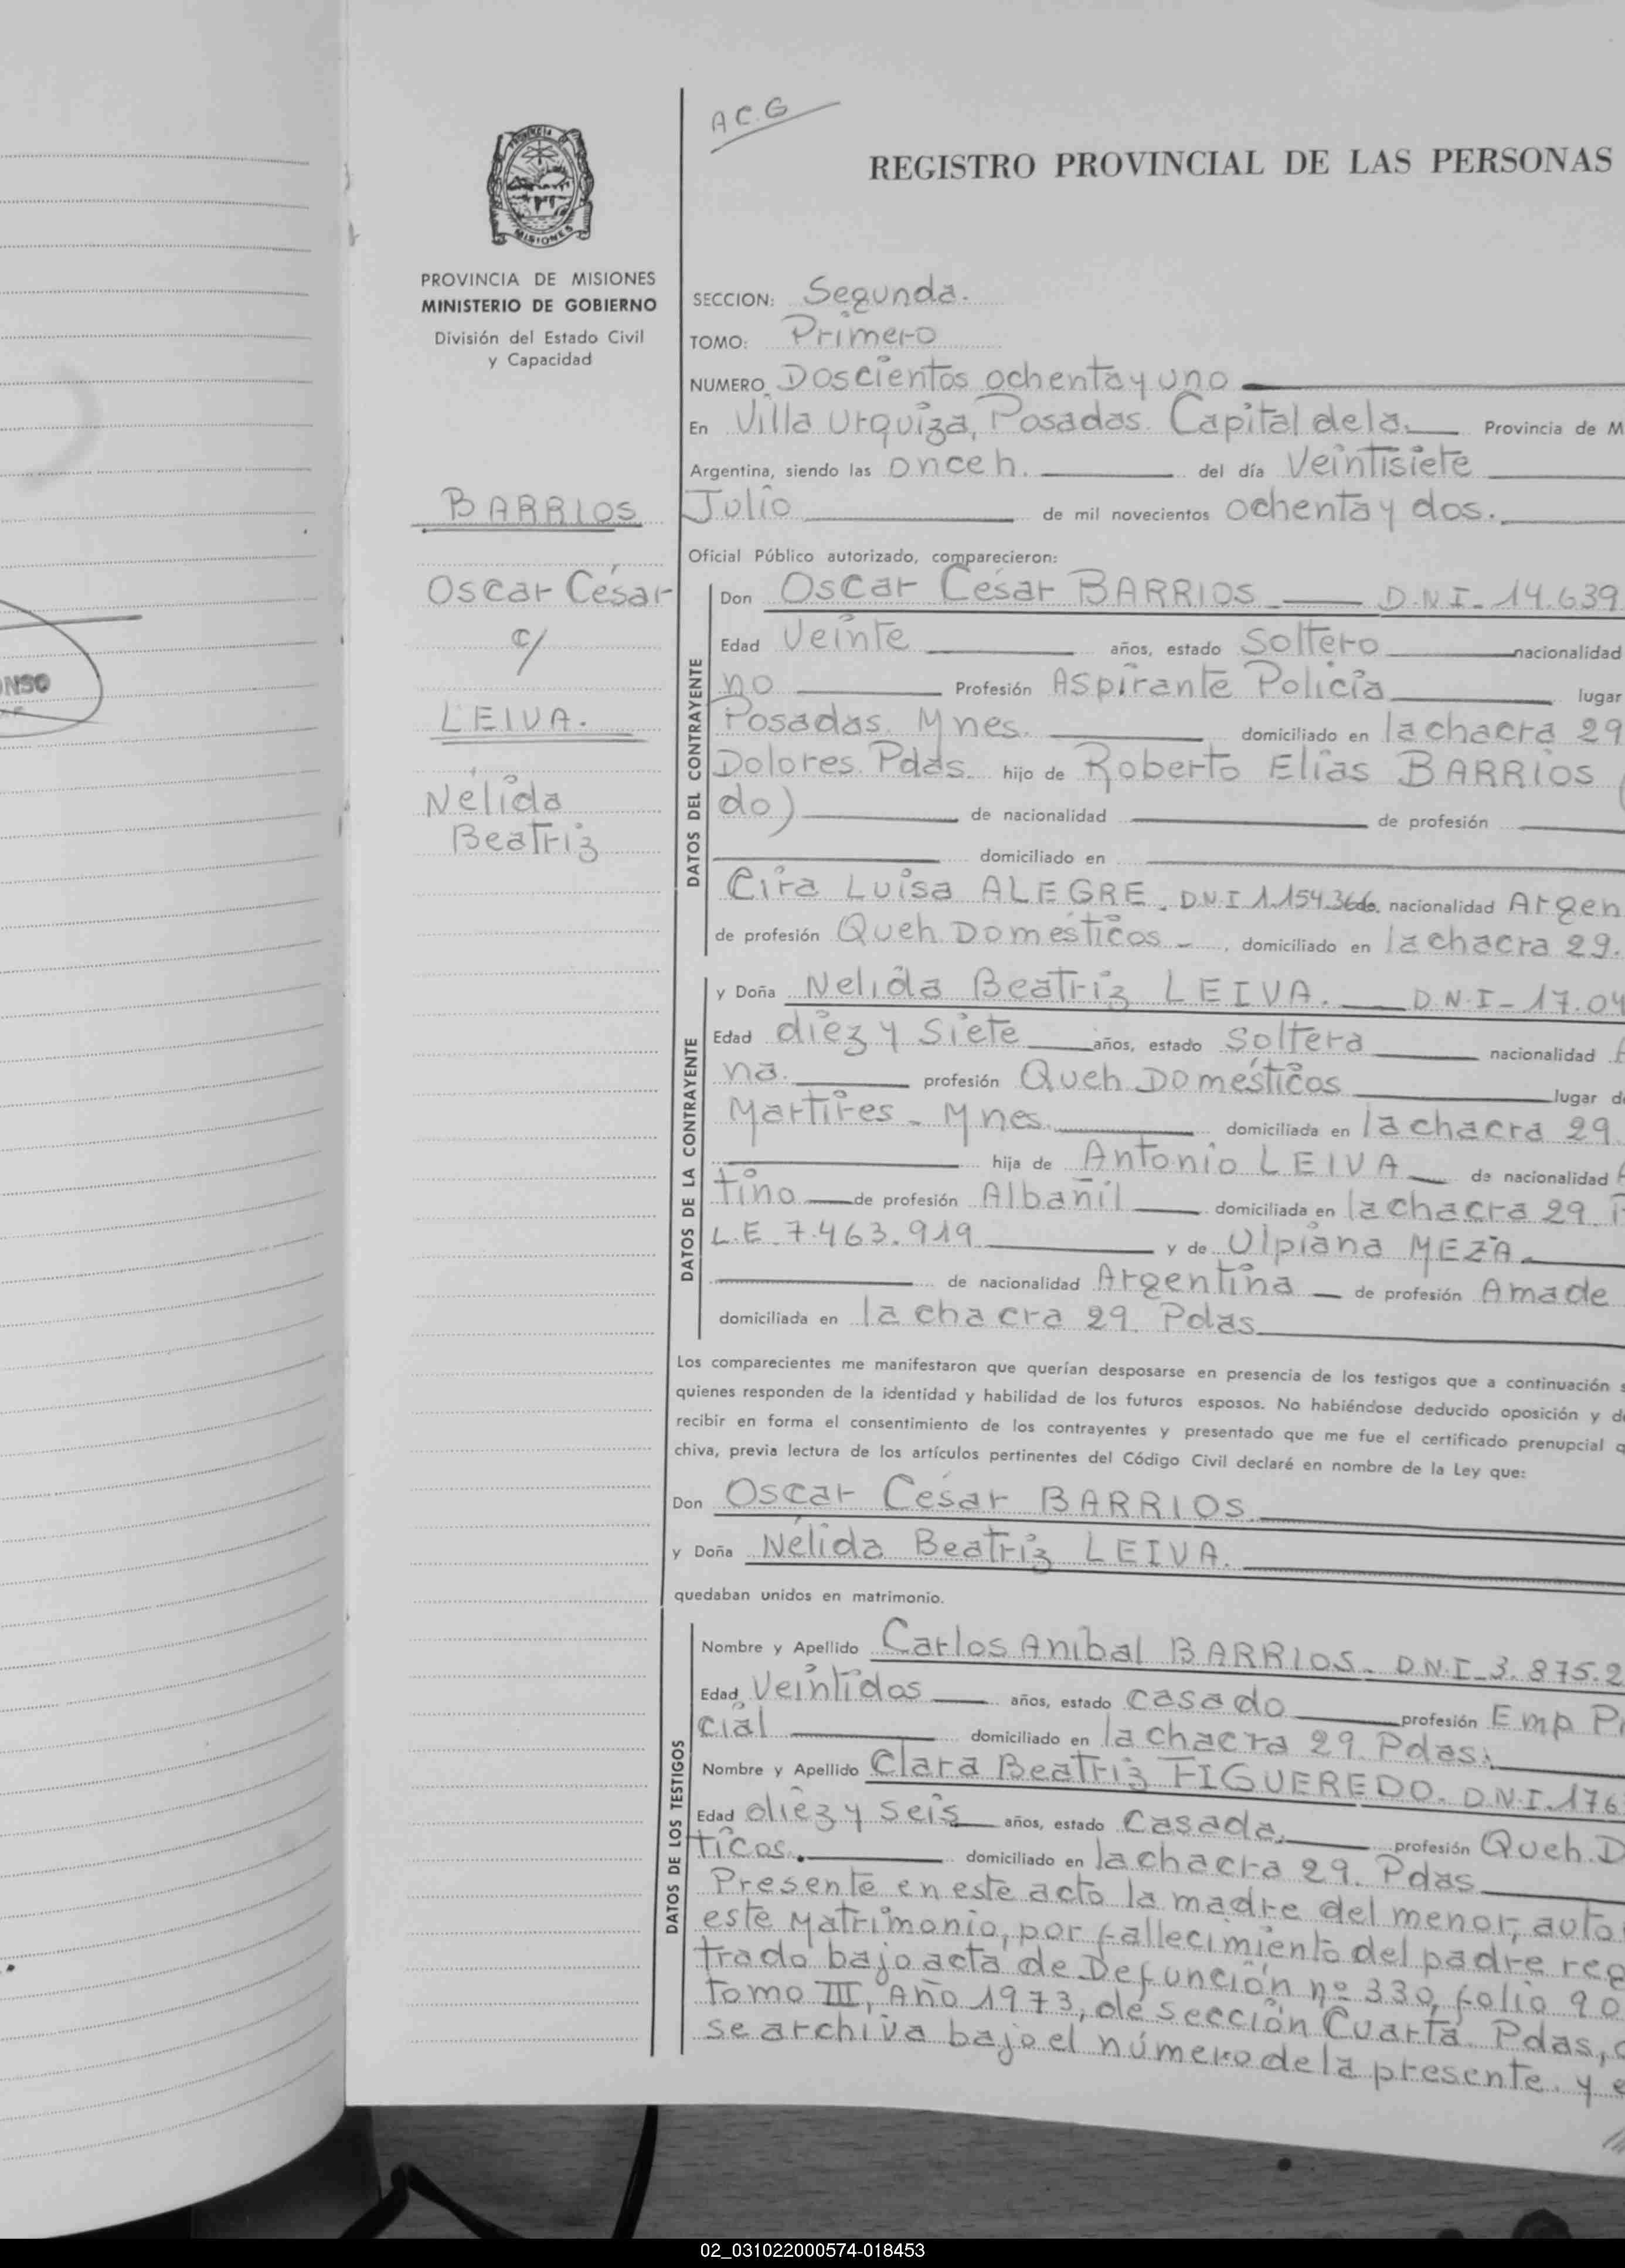 A C. G
REGISTRO PROVINCIAL DE LAS PERSONAS
PROVINCIA
MISIONES
PROVINCIA DE MISIONES
MINISTERIO DE GOBIERNO
División del Estado Civil
y Capacidad
SECCION: Segunda.
TOMO: Primero
NUMERO Doscientos ochenta y uno
En Villa Urquiza, Posadas. Capital de la. Provincia de M
Argentina, siendo las once h. del día Veintisiete
Julio de mil novecientos ochenta y dos.
BARRIOS
Oscar César
c/
LEIVA.
Nélida
Beatriz
NSO
Oficial Público autorizado, comparecieron:
DATOS DEL CONTRAYENTE
Don Oscar César BARRIOS D.N.I. 14.639
Edad Veinte años, estado Soltero nacionalidad
no Profesión Aspirante Policía lugar
Posadas. Mnes. domiciliado en la chacra 29
Dolores. Pdas. hijo de Roberto Elias BARRIOS (
do) de nacionalidad de profesión
domiciliado en
Cira Luisa ALEGRE. D.N.I 1.154.366 de nacionalidad Argen
de profesión Queh Domésticos, domiciliado en la chacra 29.
DATOS DE LA CONTRAYENTE
y Doña Nelida Beatriz LEIVA. D.N.I- 17.04
Edad diez y siete años, estado Soltera nacionalidad A
na. profesión Queh Domésticos lugar de
Martires - Mnes. domiciliada en la chacra 29.
hija de Antonio LEIVA de nacionalidad A
tino de profesión Albañil domiciliada en la chacra 29. P
L.E. 7.463.919 y de Ulpiana MEZA
de nacionalidad Argentina de profesión Amade
domiciliada en la chacra 29. Pdas.
Los comparecientes me manifestaron que querían desposarse en presencia de los testigos que a continuación s
quienes responden de la identidad y habilidad de los futuros esposos. No habiéndose deducido oposición y d
recibir en forma el consentimiento de los contrayentes y presentado que me fue el certificado prenupcial q
chiva, previa lectura de los artículos pertinentes del Código Civil declaré en nombre de la Ley que:
Don Oscar César BARRIOS.
y Doña Nélida Beatriz LEIVA.
quedaban unidos en matrimonio.
DATOS DE LOS TESTIGOS
Nombre y Apellido Carlos Anibal BARRIOS. D.N.I. 3.875.2
Edad Veintidos años, estado casado profesión Emp Pr
cial domiciliado en la chacra 29. Pdas.
Nombre y Apellido Clara Beatriz FIGUEREDO. D.N.I. 176
Edad diez y seis años, estado Casada. profesión Queh. D
ticos. domiciliado en la chacra 29. Pdas
Presente en este acto la madre del menor, auto
este Matrimonio, por fallecimiento del padre reg
trado bajo acta de Defunción nº 330, folio 90
Tomo III, Año 1973, de sección Cuarta. Pdas,
se archiva bajo el número de la presente. y e
02_031022000574-018453